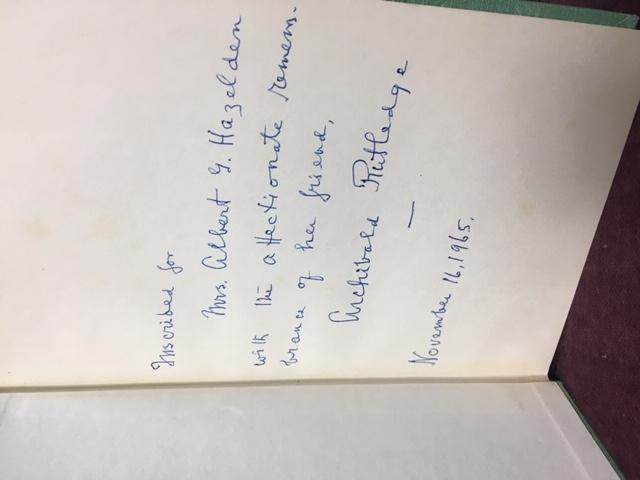 Inscribed for
Mrs. Albert G. Hazelden
with the affectionate remem-
brance of her friend,
Archibald Rutledge
—
November 16, 1965.